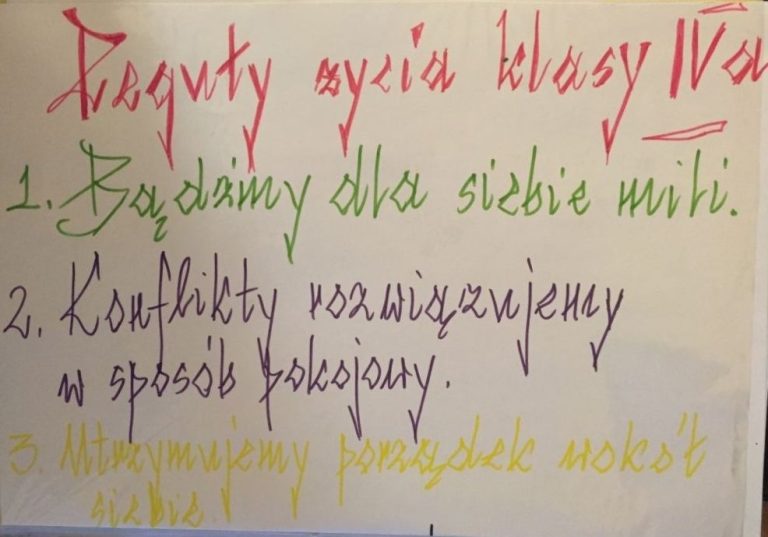 Reguły życia klasy IVa
1. Bądźmy dla siebie mili.
2. Konflikty rozwiązujemy
w sposób pokojowy.
3. Utrzymujemy porządek wokół
siebie.